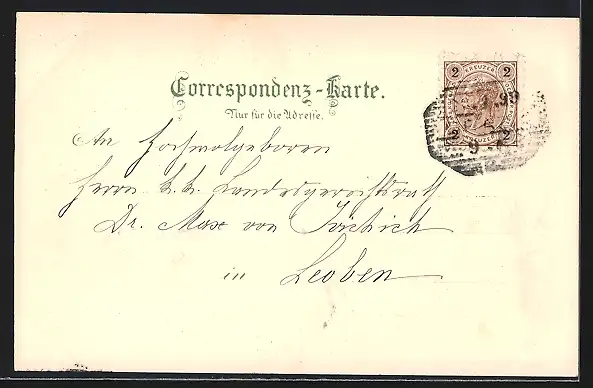 Correspondenz-Karte.
Nur für die Adresse.
2 KREUZER 2
2 KREUZER 2
99
9
An Hochwolgeboren
Herrn k. k. Landesgerichtsrath
Dr. Max von
in Leoben